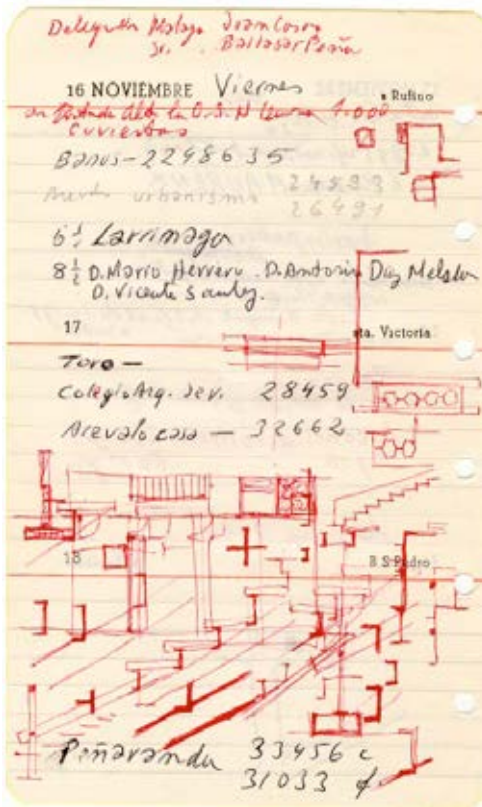 Delegación Malaga Juan Casas
Sr. . Baltasar Peña
16 NOVIEMBRE Viernes s Rufino
la O.S.H 1.000
Cuviertas
Banus - 2248635
urbanismo 24533
26491
6 ½ Larrinaga
8 ½ D. Mario Herrero . D. Antonio Diaz
D. Vicente
17 sta. Victoria
Toro —
Colegio Arq. Sev. 28459
Arevalo casa — 32662
18 B S Pedro
Peñaranda 33456 c
31033